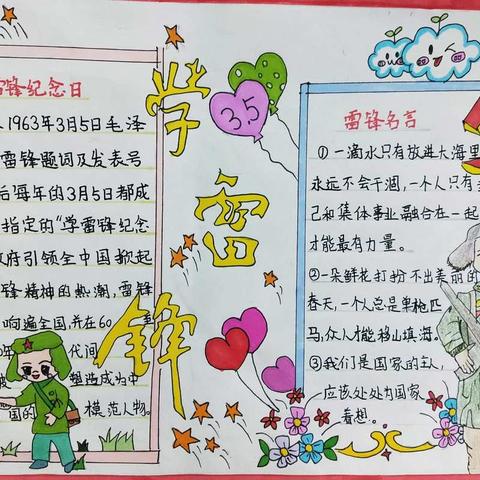 雷锋纪念日
1963年3月5日毛泽
雷锋题词及发表号
后每年的3月5日都成
指定的“学雷锋纪念
政府引领全中国掀起
锋精神的热潮,雷锋
响遍全国,并在60
代间
塑造成为中
国的 模范人物。
学
雷
锋
3.5
雷锋名言
①一滴水只有放进大海里
永远不会干涸,一个人只有
己和集体事业融合在一起
才能最有力量。
②一朵鲜花打扮不出美丽的
春天,一个人总是单枪匹
马,众人才能移山填海。
③我们是国家的主人,
应该处处为国家
着想。